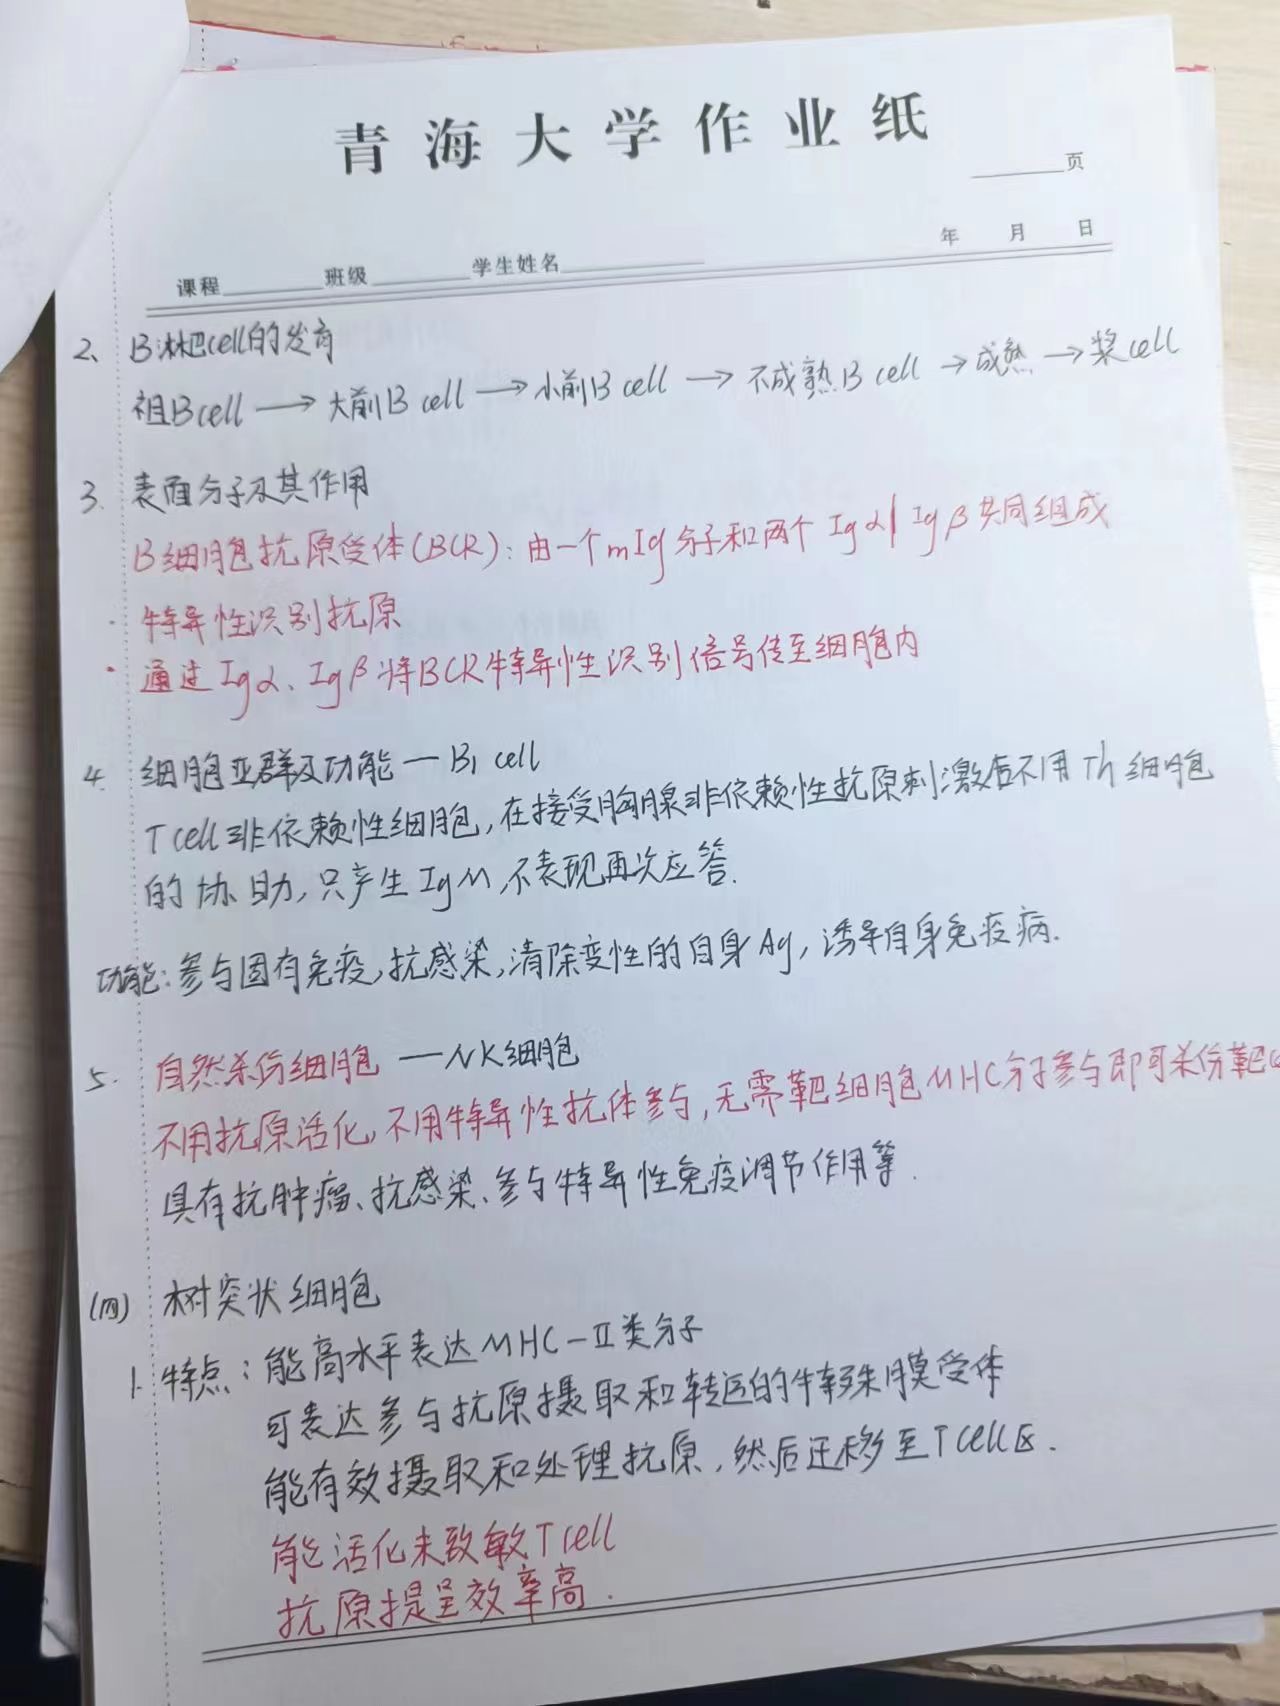 青海大学作业纸
页
年 月 日
课程 班级 学生姓名
2、B淋巴cell的发育
祖B cell → 大前B cell → 小前B cell → 不成熟B cell → 成熟 → 浆cell
3. 表面分子及其作用
B细胞抗原受体(BCR)：由一个mIg分子和两个Igα/Igβ共同组成
· 特异性识别抗原
· 通过Igα、Igβ将BCR特异性识别信号传至细胞内
4. 细胞亚群及功能 — B1 cell
T cell非依赖性细胞，在接受胸腺非依赖性抗原刺激后不用Th细胞
的协助，只产生IgM，不表现再次应答.
功能：参与固有免疫，抗感染，清除变性的自身Ag，诱导自身免疫病.
5. 自然杀伤细胞 — NK细胞
不用抗原活化，不用特异性抗体参与，无需靶细胞MHC分子参与即可杀伤靶
具有抗肿瘤、抗感染、参与特异性免疫调节作用等.
(四) 树突状细胞
1. 特点：能高水平表达MHC-Ⅱ类分子
可表达参与抗原摄取和转运的特殊膜受体
能有效摄取和处理抗原，然后迁移至T cell区.
能活化未致敏T cell
抗原提呈效率高.